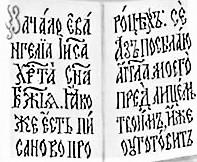 Зачѧло єѵа
нгелїѧ І҃иса
Хрⷭ҇та Сн҃а
Бж҃їѧ. Ꙗко
же єсть пи
сано во про
роцѣхъ: се
азъ посылаю
аг҃гла моего
пред лицемъ
твоимъ, иже
оуготовитъ